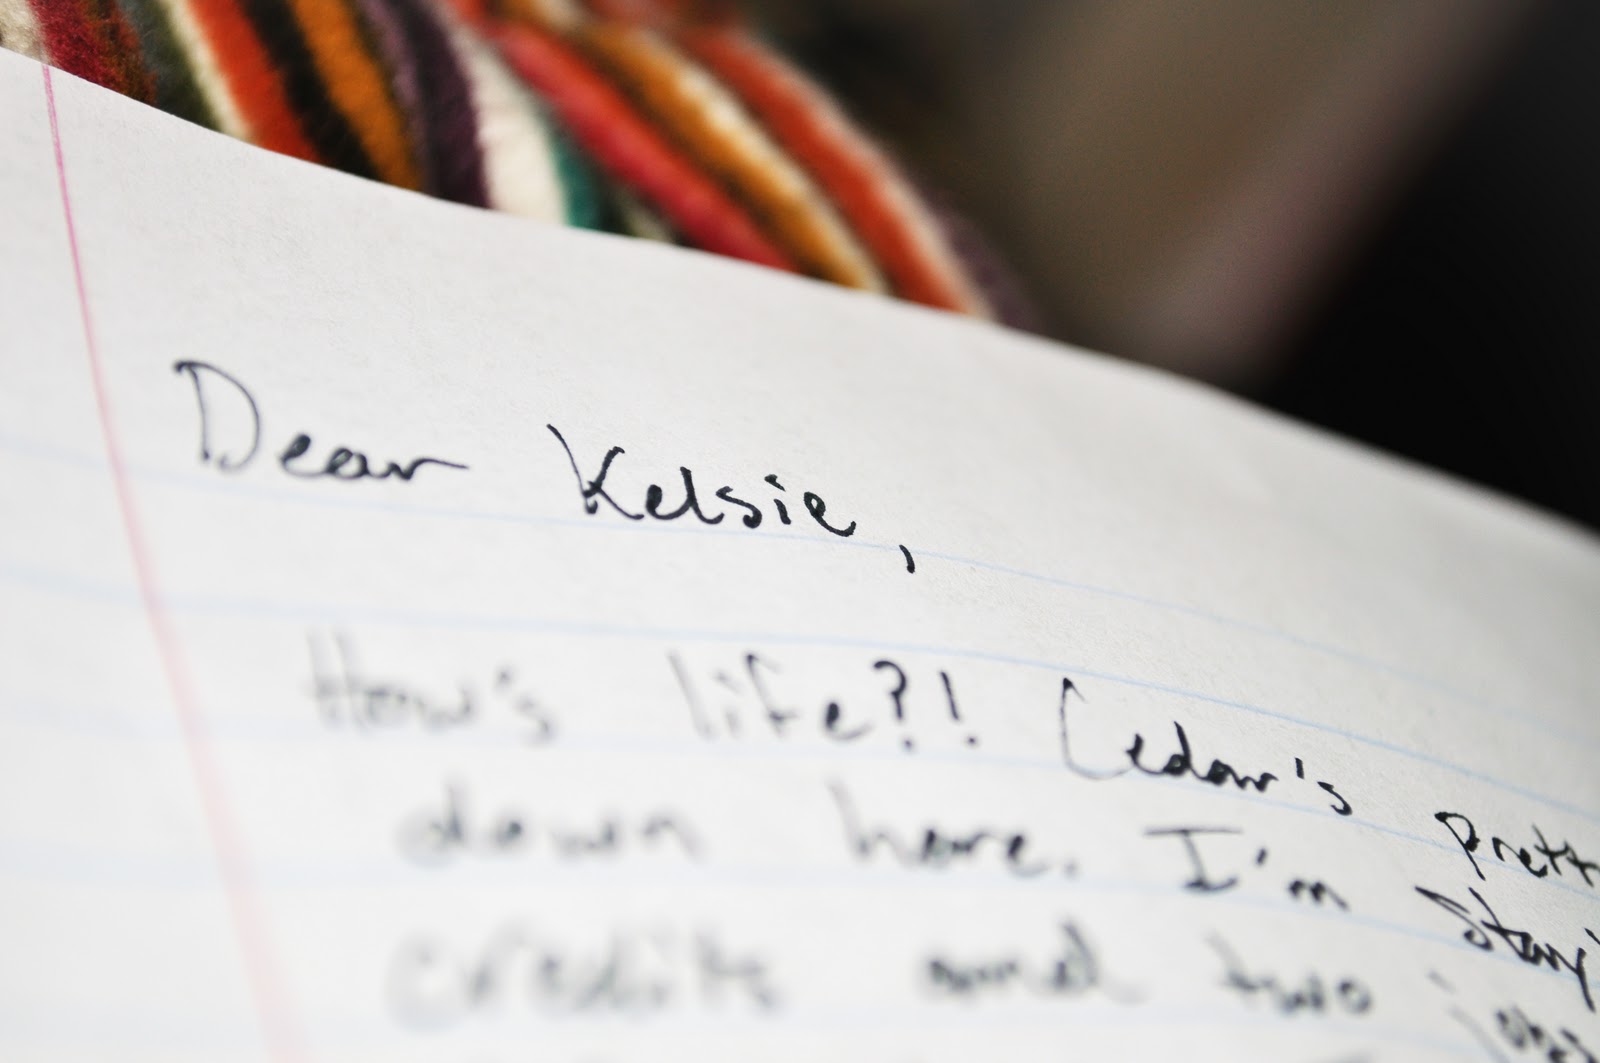 Dear Kelsie,
How's life?! Cedar's prett
down here. I'm stay
credits and two jobs